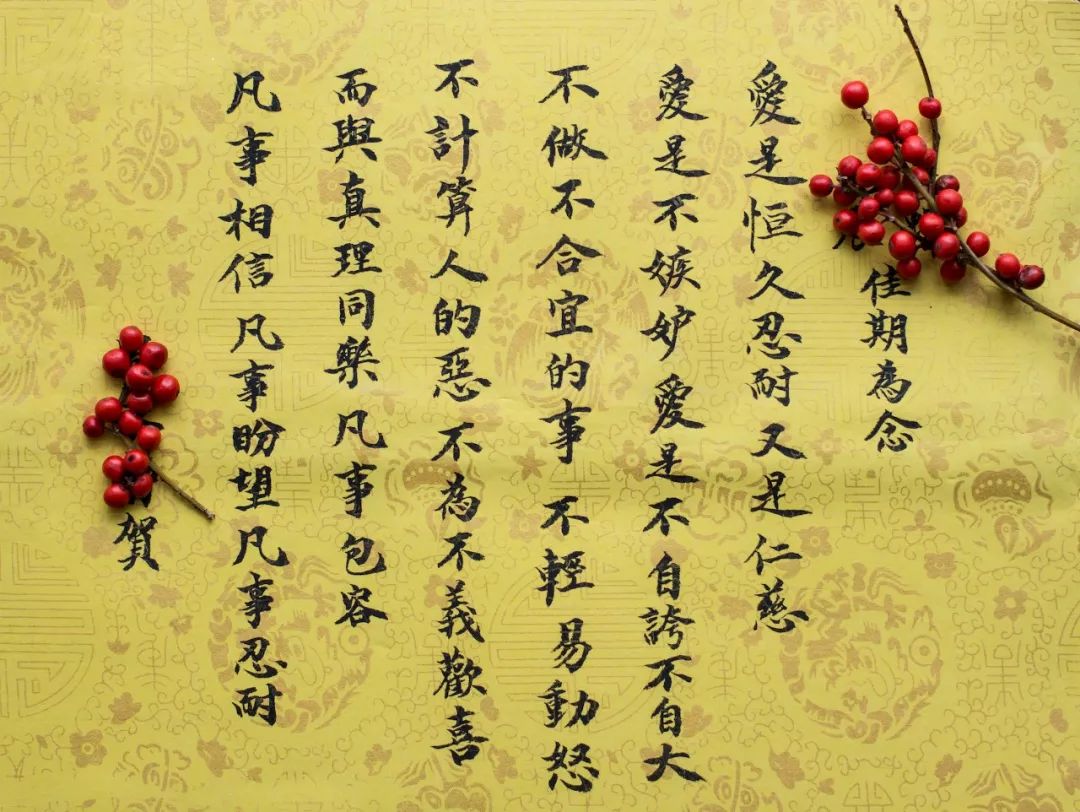 佳期為念
愛是恒久忍耐又是仁慈
愛是不嫉妒 愛是不自誇不自大
不做不合宜的事 不輕易動怒
不計算人的惡 不為不義歡喜
而與真理同樂 凡事包容
凡事相信 凡事盼望凡事忍耐
賀